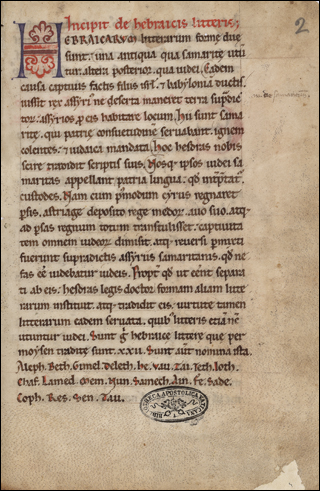 Incipit de hebraicis litteris;
2
HEBRAICARUM litterarum forme due
sunt. una antiqua qua samarite utun
tur. altera posterior qua iudei. Eadem
causa captiuis factis filiis isrl. & babyloniā ductis.
iussit rex assyriorū ne deserta maneret terra
assyrios. p eis habitare locum. hii sunt sama
rite. qui patrie consuetudine seruabant. ignem
colentes. & iudaica mandata. hoc hesdras nobis
scire tradidit scriptis suis. Hosq. ipsos iudei sa
maritas appellant patria lingua. qd intptat.
custodes. Nam cum pmodum cyrus regnaret
psis. astriage deposito rege medor. auo suo. atq.
ad psas regnum totum transtulisset. captiuita
tem omnem iudeor dimisit. atq. reuersi pmixti
fuerunt supradictis assyriis samaritanis. qd ne
fas eē uidebatur iudeis. Propt qd ut eent separa
ti ab eis. hesdras legis doctor formam aliam litte
rarum instituit. atq. tradidit eis. uirtute tamen
litterarum eadem seruata. quib litteris etiā nc
utuntur iudei. Sunt g hebraice littere que per
moysen tradite sunt. xxii. Sunt aut nomina ista.
Aleph. Beth. Gimel. Deleth. he. Vau. Zai. heth. Ioth.
Chaf. Lamed. Mem. Nun. Samech. Ain. fe. Sade.
Coph. Res. Sen. Tau.
BIBLIOTHECA APOSTOLICA VATICANA